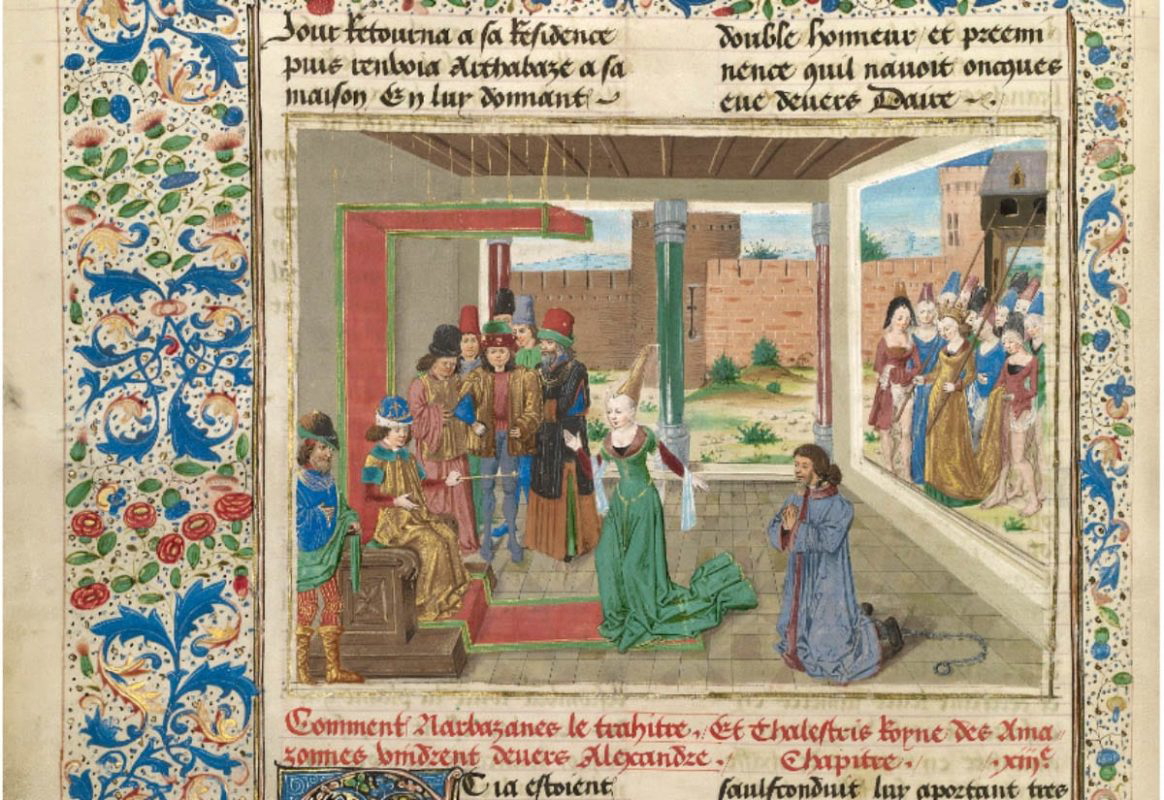 Jour retourna a sa residence
puis renvoia Arthabaze a sa
maison En luy donnant
double honneur et preemi
nence quil navoit oncques
eue devers Daire .
Comment Narbazanes le trahitre . Et Thalestris Royne des Ama
zonnes vindrent devers Alexandre . Chapitre . xiiie
Cia estoient
saulfconduit luy aportant tres